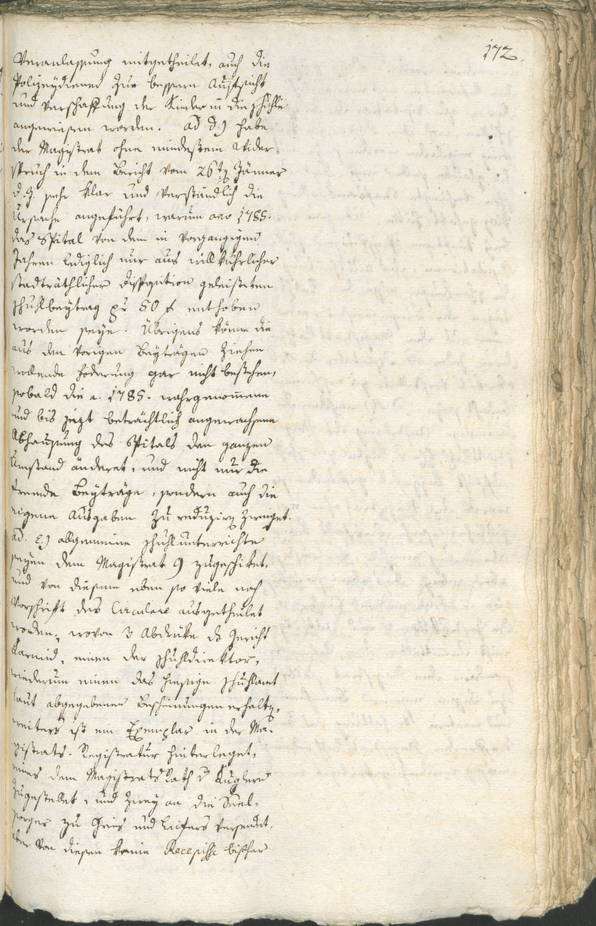 172.
Veranlassung mitgetheilet, auch die
Polizeydiener zur bessern Aufsicht
und Verschaffung der Kinder in die Schulle
angewiesen worden. ad d.) habe
der Magistrat ohne mindesten Wider-
spruch in dem Bericht vom 26ten Jänner
d. J. sehr klar und verständlich die
Ursache angeführt, warum ano 1785.
das Spital von dem in vorgangigen
Jahren lediglich nur aus willkührlicher
stadträthlicher Disposition geleisteten
Schullbeytrag zu 50 f enthoben
worden seye. Übrigens könne die
aus den vorigen Beyträgen ziehen
wollende Foderung gar nicht bestehen,
sobald die a. 1785. wahrgenommene
und bis jezt beträchtlich angewachsene
Abhausung des Spitals den ganzen
Umstand änderet, und nicht nur die
fremde Beyträge, sondern auch die
eigene Ausgaben zu reduziren zwinget.
ad. e.) allgemeine Schullunterrichte
seyen dem Magistrat 9 zugeschiket,
und von diesem eben so viele nach
Vorschrift des Circulars ausgetheilet
worden, wovon 3 Abdrüke das Gericht
Karneid, einen der Schulldirektor,
wiederum einen das hiesige Schullamt
laut abgegebenen Bescheinungen erhalten,
weiters ist ein Exemplar in der Ma-
gistrats-Registratur hinterleget,
eines dem Magistrats Rath v Kuglern
zugestellet, und zwey an die Seel-
sorger zu Gries und Leifers versendet,
aber von diesen keine Recepisse bisher